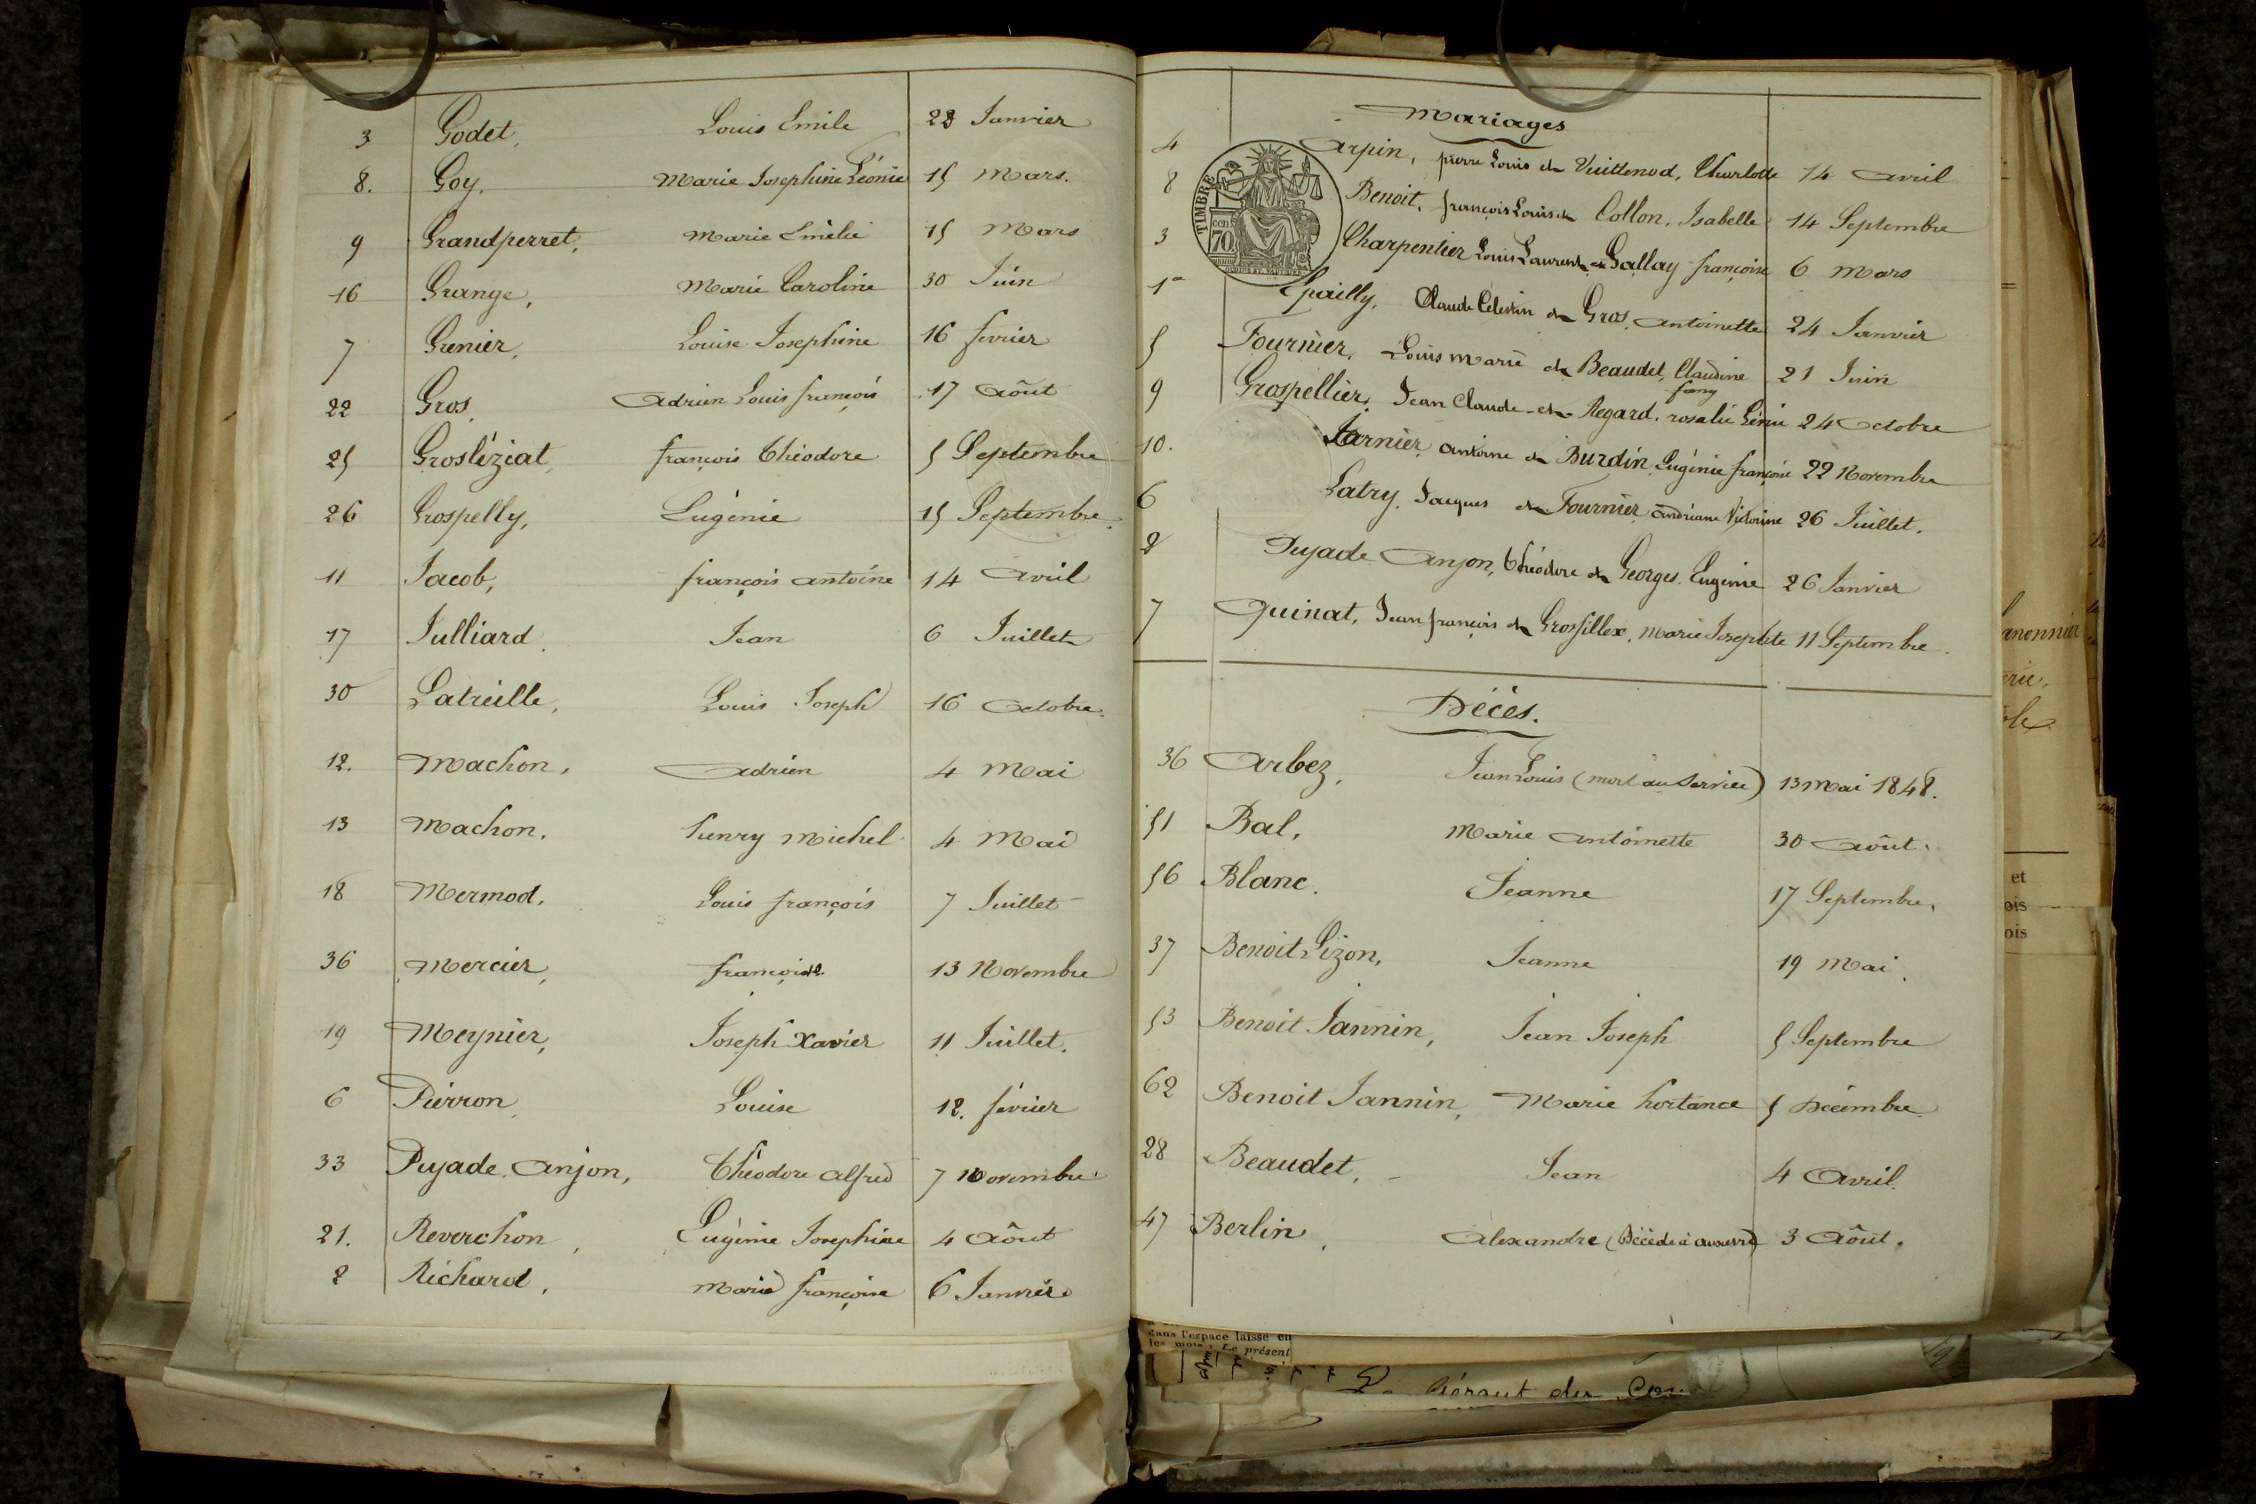 3 Godet, Louis Emile 23 Janvier
8. Goy, Marie Josephine Léonie 15 Mars.
9 Grandperret, Marie Emélie 15 Mars
16 Grange, Marie Caroline 30 Juin
7 Grenier, Louise Josephine 16 fevrier
22 Gros, Adrien Louis françois 17 Aôut
25 Grosléziat, françois Théodore 5 Septembre
26 Grospelly, Eugénie 15 Septembre.
11 Jacob, françois antoine 14 Avril
17 Julliard, Jean 6 Juillet
30 Latreille, Louis Joseph 16 Octobre.
12. Machon, Adrien 4 Mai
13 Machon, henry Michel 4 Mai
18 Mermod, Louis françois 7 Juillet
36 Mercier, françoise 13 Novembre
19 Meynier, Joseph Xavier 11 Juillet.
6 Pierron, Louise 12. février
33 Puyade Anjon, Théodore Alfred 7 Novembre
21. Reverchon, Eugénie Josephine 4 Aôut
2 Richard, Marie françoise 6 Janvier
Mariages
TIMBRE
70
4 Arpin, pierre Louis et Vuittenod, Charlotte 14 Avril
8 Benoit, françois Louis et Collon, Isabelle 14 Septembre
3 Charpentier Louis Laurent et Gallay françoise 6 Mars
1er Epailly, Claude Célestin et Gros, antoinette 24 Janvier
5 Fournier, Louis Marie et Beaudet, Claudine 21 Juin
fany
9 Grospellier, Jean Claude et Regard, rosalie 24 Octobre
10. Jarnier, antoine et Burdin, Eugénie françoise 22 Novembre
6 Latry, Jacques et Fournier, andriane Victorine 26 Juillet.
2 Puyade Anjon, Théodore et Georges Eugénie 26 Janvier
7 Quinat, Jean françois et Grosfillex, Marie Josephte 11 Septembre.
Décès.
36 Arbez, Jean Louis (mort au Service) 13 Mai 1848.
51 Bal, Marie Antoinette 30 Août.
56 Blanc. Jeanne 17 Septembre.
37 Benoit Lizon, Jeanne 19 Mai.
53 Benoit Jannin, Jean Joseph 5 Septembre
62 Benoit Jannin, Marie hortance 5 Décembre
28 Beaudet, Jean 4 Avril
47 Berlin, Alexandre (Décédé à auxerre) 3 Aôut.
et
ois
ois
dans l'espace laissé en
les mots : Le présent